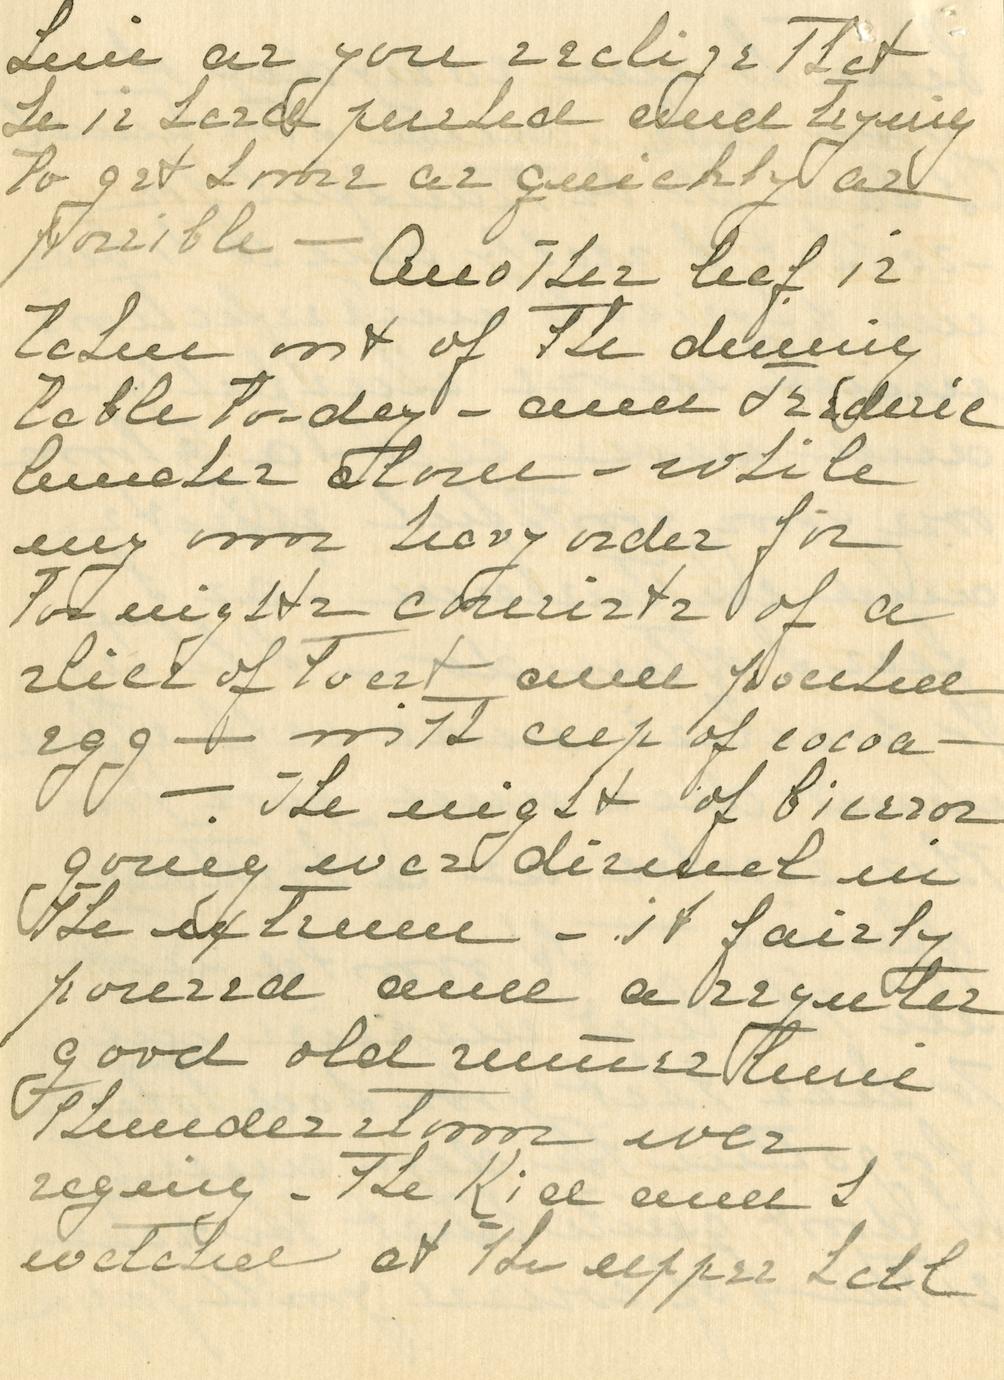 him as you realize that
he is hard pushed and trying
to get home as quickly as
possible —
Another leaf is
taken out of the dining
table to-day - and Frederic
lunches alone - while
my own heavy order for
to-nights consists of a
slice of toast and poached
egg — with cup of cocoa —
— . The night of
going was dismal in
the extreme - it fairly
poured and a regular
good old summer time
thunderstorm was
raging - The Kid and I
watched at the upper hall